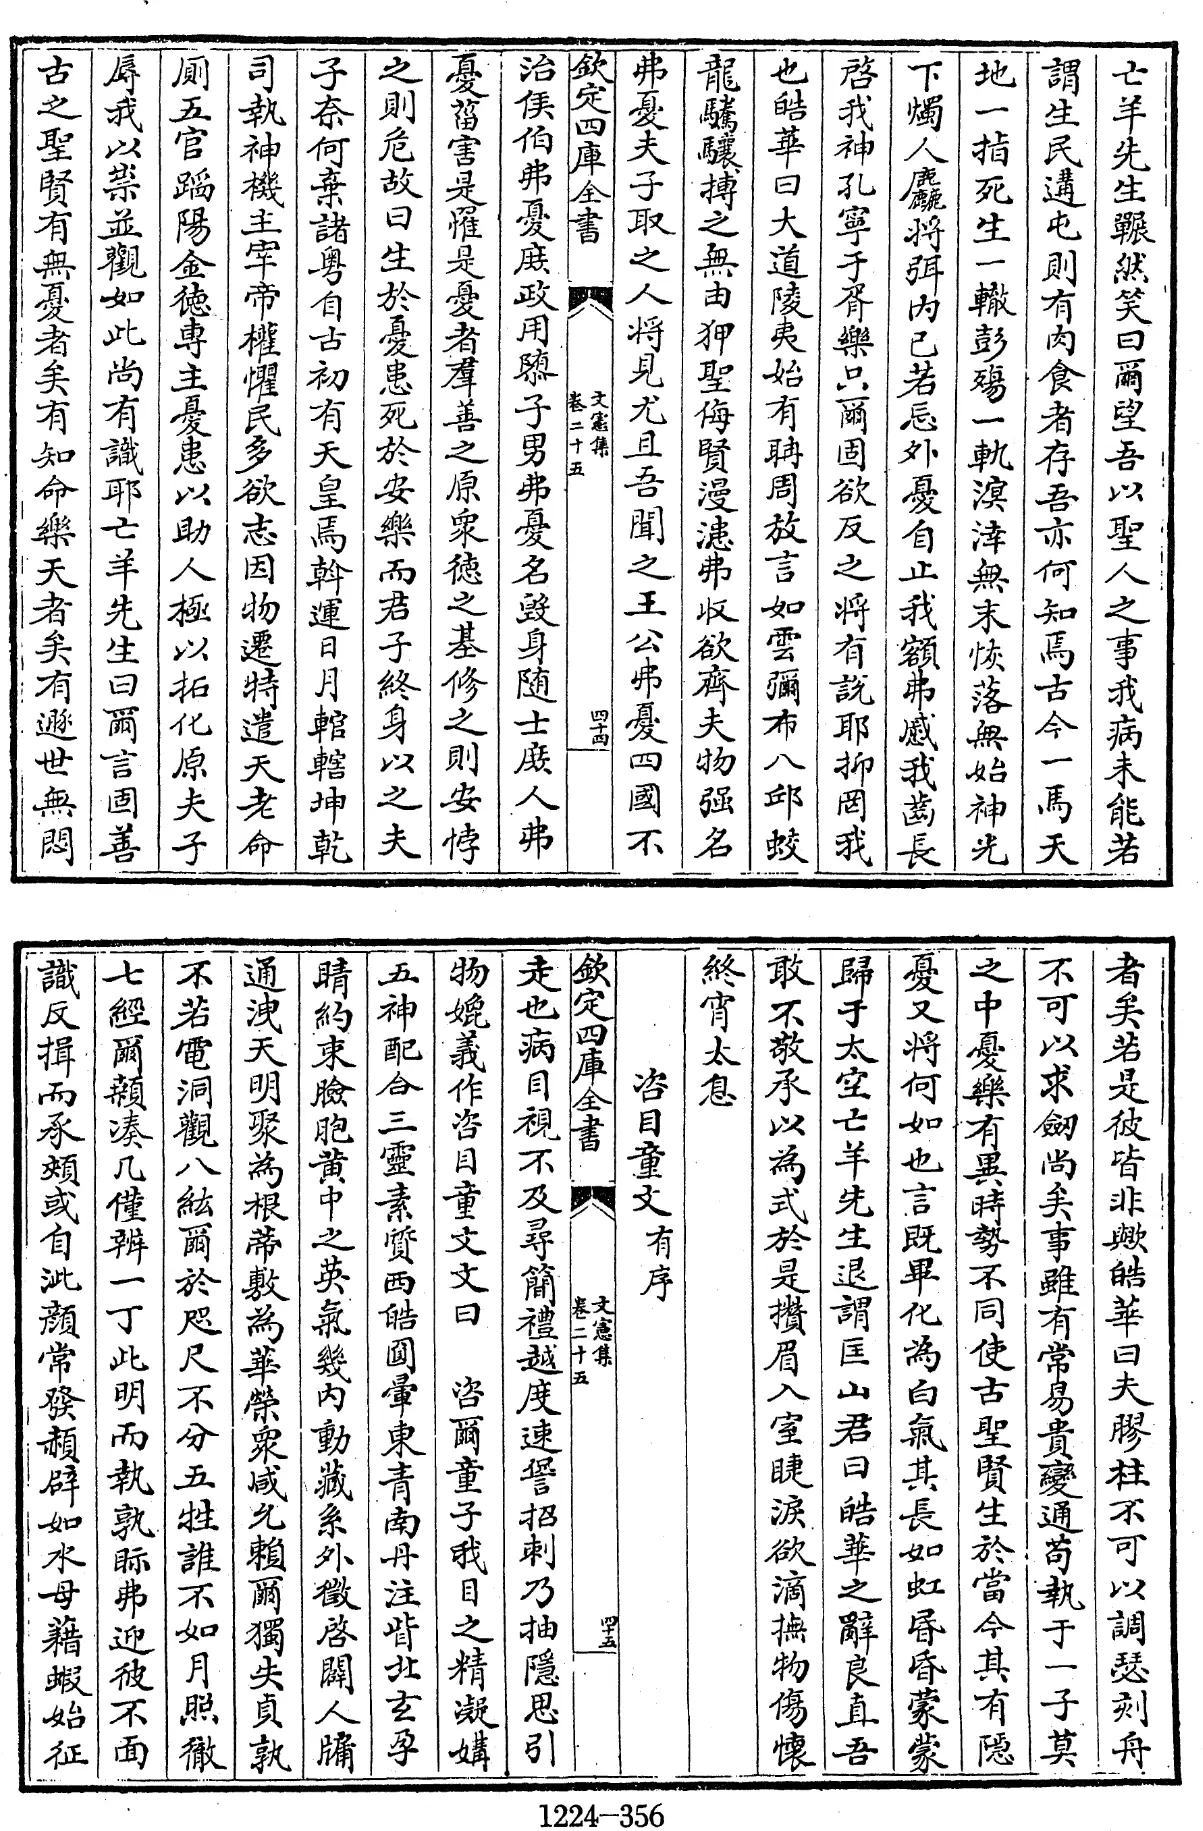 亡羊先生囅然笑曰爾望吾以聖人之事我病未能若
謂生民遘屯則有肉食者存吾亦何知焉古今一馬天
地一指死生一轍彭殤一軌溟涬無末恢落無始神光
下燭人麤將弭内已若忘外憂自止我額弗慼我齒長
啓我神孔寧于胥樂只爾固欲反之將有說耶抑罔我
也皓華曰大道陵夷始有聃周放言如雲彌布八邱蛟
龍驕驤搏之無由狎聖侮賢漫漶弗收欲齊夫物强名
弗憂夫子取之人将見尤且吾聞之王公弗憂四國不
欽定四庫全書
文憲集
卷二十五
四十四
治侯伯弗憂庶政用隳子男弗憂名毀身随士庶人弗
憂菑害是罹是憂者羣善之原衆徳之基修之則安悖
之則危故曰生於憂患死於安樂而君子終身以之夫
子奈何棄諸粤自古初有天皇焉斡運日月輨轄坤乾
司執神機主宰帝權懼民多欲志因物遷特遣天老命
厠五官蹈陽金徳専主憂患以助人極以拓化原夫子
辱我以祟並觀如此尚有識耶亡羊先生曰爾言固善
古之聖賢有無憂者矣有知命樂天者矣有遯世無悶
者矣若是彼皆非歟皓華曰夫膠柱不可以調瑟刻舟
不可以求劒尚矣事雖有常易貴變通苟執于一子莫
之中憂樂有異時勢不同使古聖賢生於當今其有隠
憂又將何如也言既畢化為白氣其長如虹昬昏蒙蒙
歸于太空亡羊先生退謂匡山君曰皓華之辭良直吾
敢不敬承以為式於是攢眉入室睫淚欲滴撫物傷懐
終宵太息
咨目童文有序
欽定四庫全書
文憲集
卷二十五
四十五
走也病目視不及尋簡禮越度速諐招刺乃抽隠思引
物媲義作咨目童文文曰　咨爾童子我目之精凝媾
五神配合三靈素質西皓圓暈東青南丹注眥北玄孕
睛約束臉胞黄中之英氣幾内動藏系外徵啓闢人牖
通洩天明聚為根蒂敷為華榮衆咸允賴爾獨失貞孰
不若電洞觀八紘爾於咫尺不分五牲誰不如月照徹
七經爾顙湊几僅辨一丁此明而執孰眎弗迎彼不面
識反揖而承頰或自泚顔常發赬辟如水母藉蝦始征
1224—356